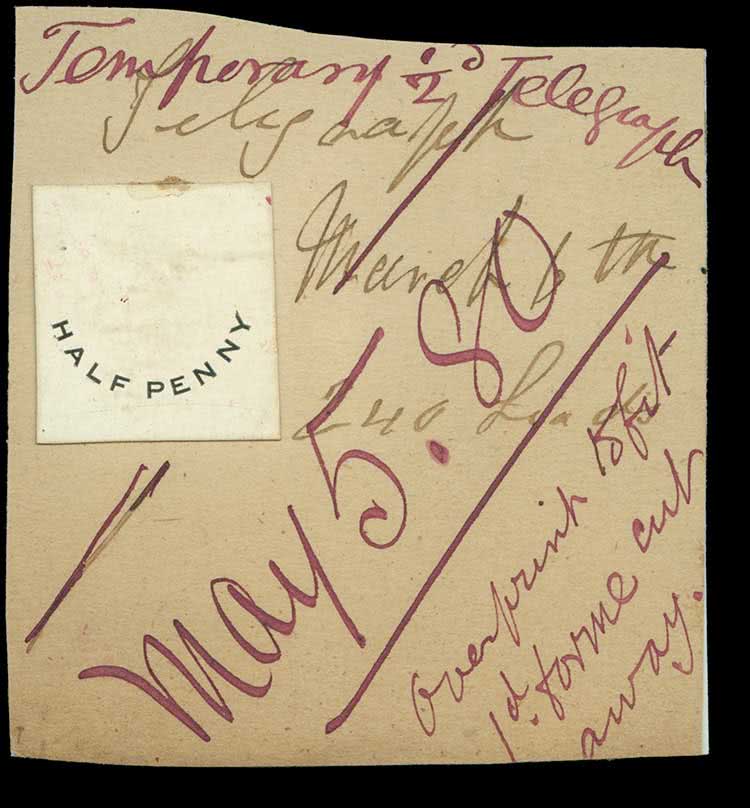 Temporary ½d Telegraph
Telegraph
March 6th
HALF PENNY
240 Leads
May 5. 80
Overprint to fit
1d. forme cut
away.